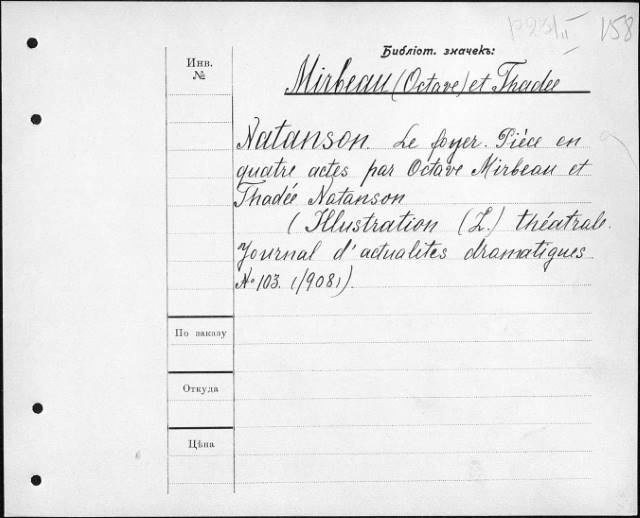 158
Библіот. значекъ:
Инв.
№
Mirbeau (Octave) et Thadée
Natanson. Le foyer. Pièce en
quatre actes par Octave Mirbeau et
Thadée Natanson
(Illustration (L.) théatrale.
Journal d'actualités dramatiques
No 103. (1908)).
По заказу
Откуда
Цѣна